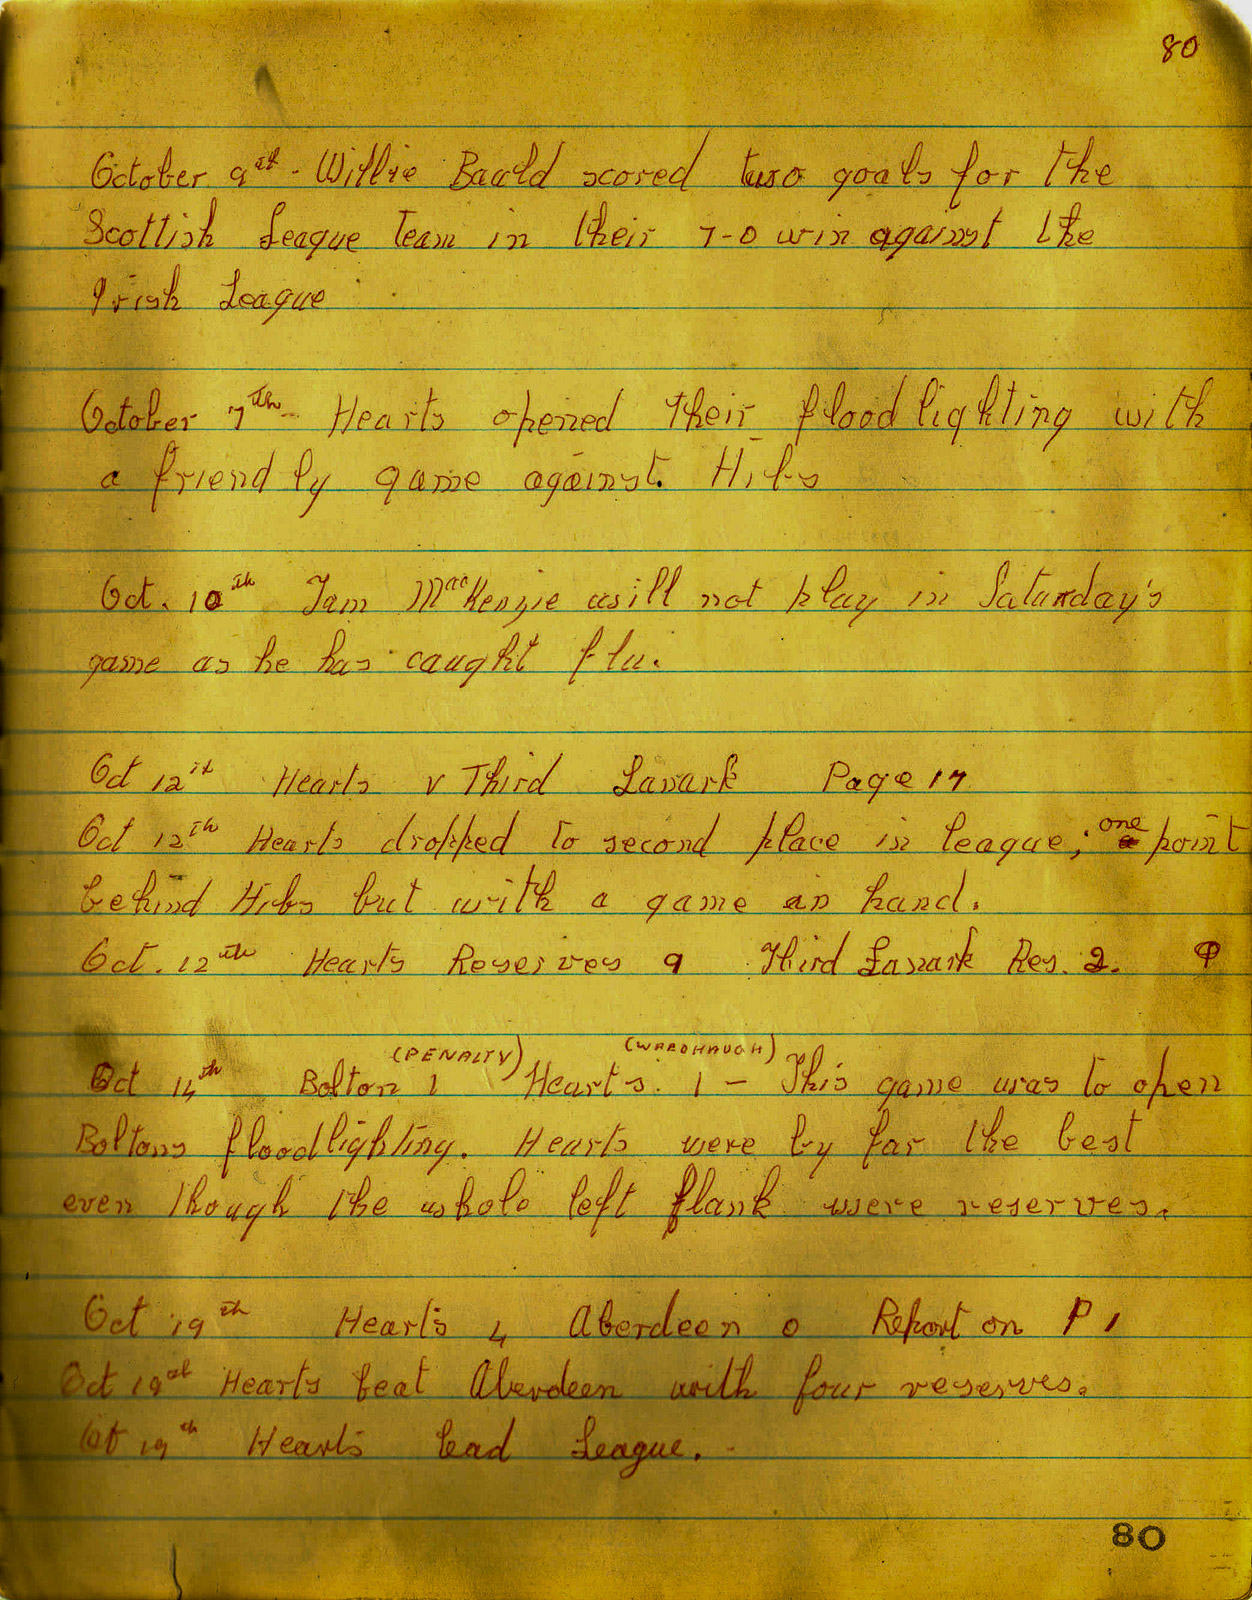 80
October 9th - Willie Bauld scored two goals for the
Scottish League Team in their 7-0 win against the
Irish League
October 7th Hearts opened their floodlighting with
a friendly game against Hibs
Oct. 10th Tam MacKenzie will not play in Saturday's
game as he has caught flu.
Oct 12th Hearts v Third Lanark Page 17
Oct 12th Hearts dropped to second place in league; one point
behind Hibs but with a game in hand.
Oct. 12th Hearts Reserves 9 Third Lanark Res. 2.
(PENALTY) (WARDHAUGH)
Oct 14th Bolton 1 Hearts. 1 - This game was to open
Boltons floodlighting. Hearts were by far the best
even though the whole left flank were reserves.
Oct 19th Hearts 4 Aberdeen 0 Report on P 1
Oct 19th Hearts beat Aberdeen with four reserves.
Oct 19th Hearts lead League. -
80